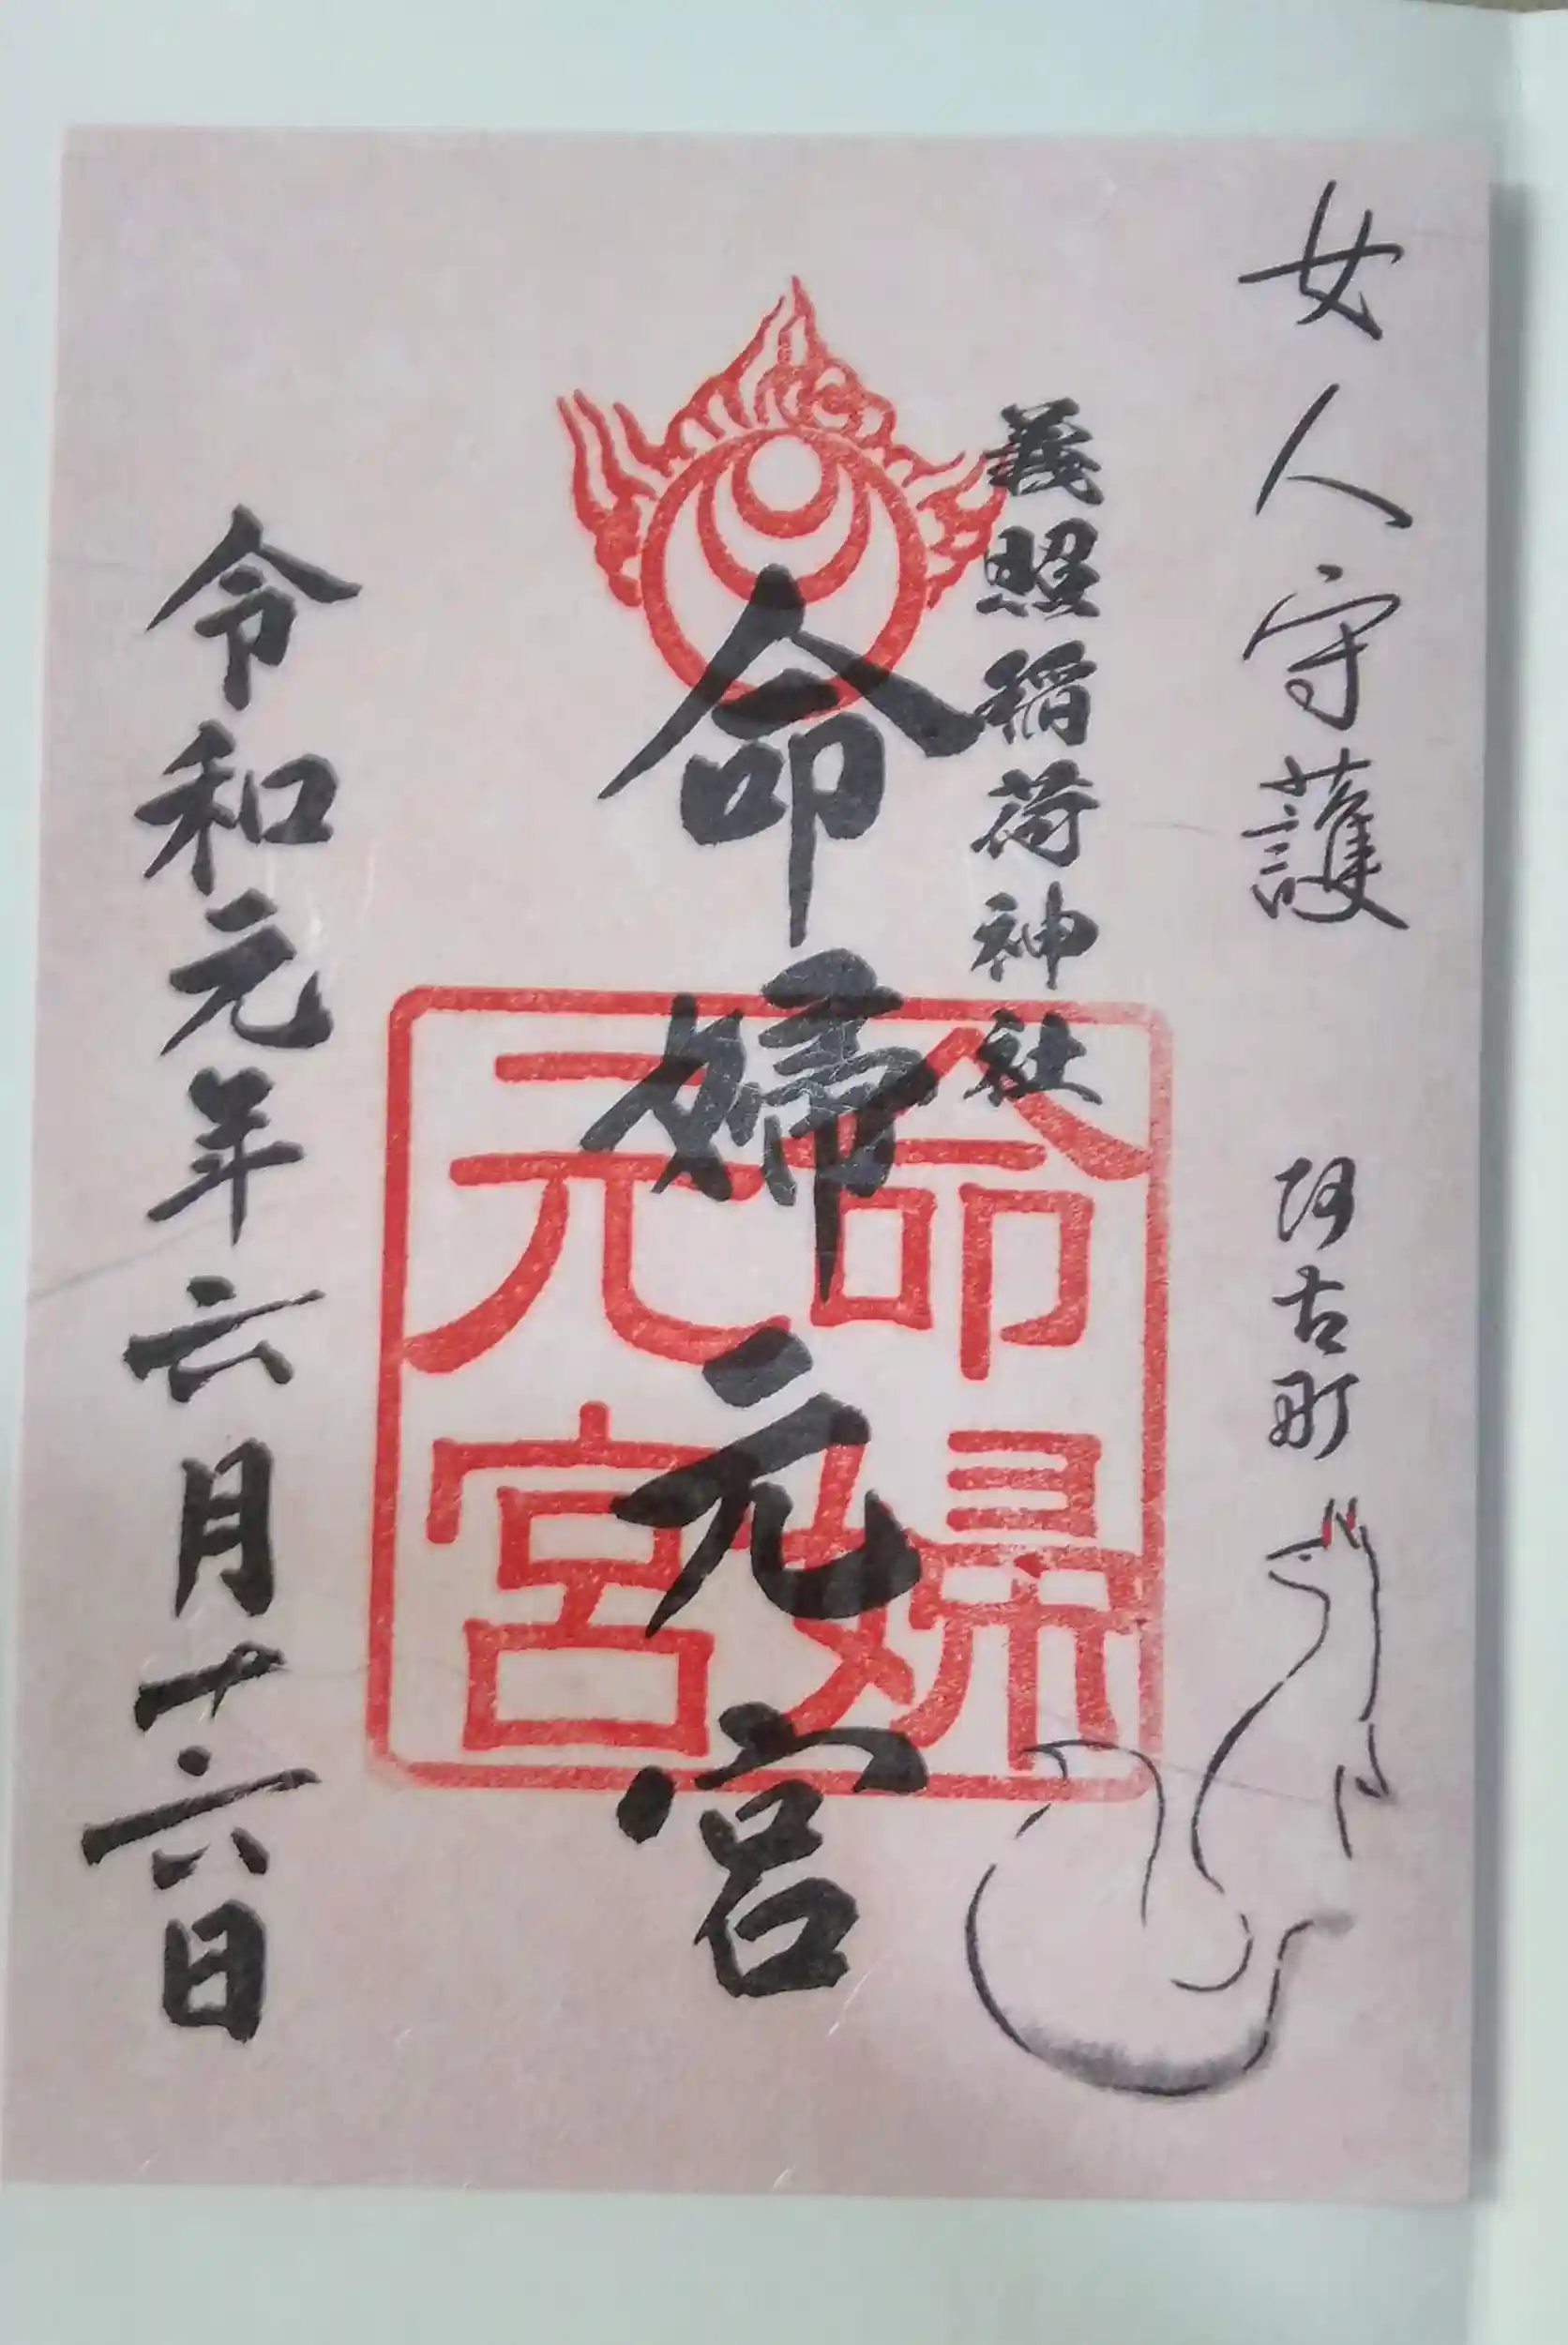 女人守護　阿古町
義照稲荷神社
命婦元宮
命婦
元宮
令和元年六月十六日